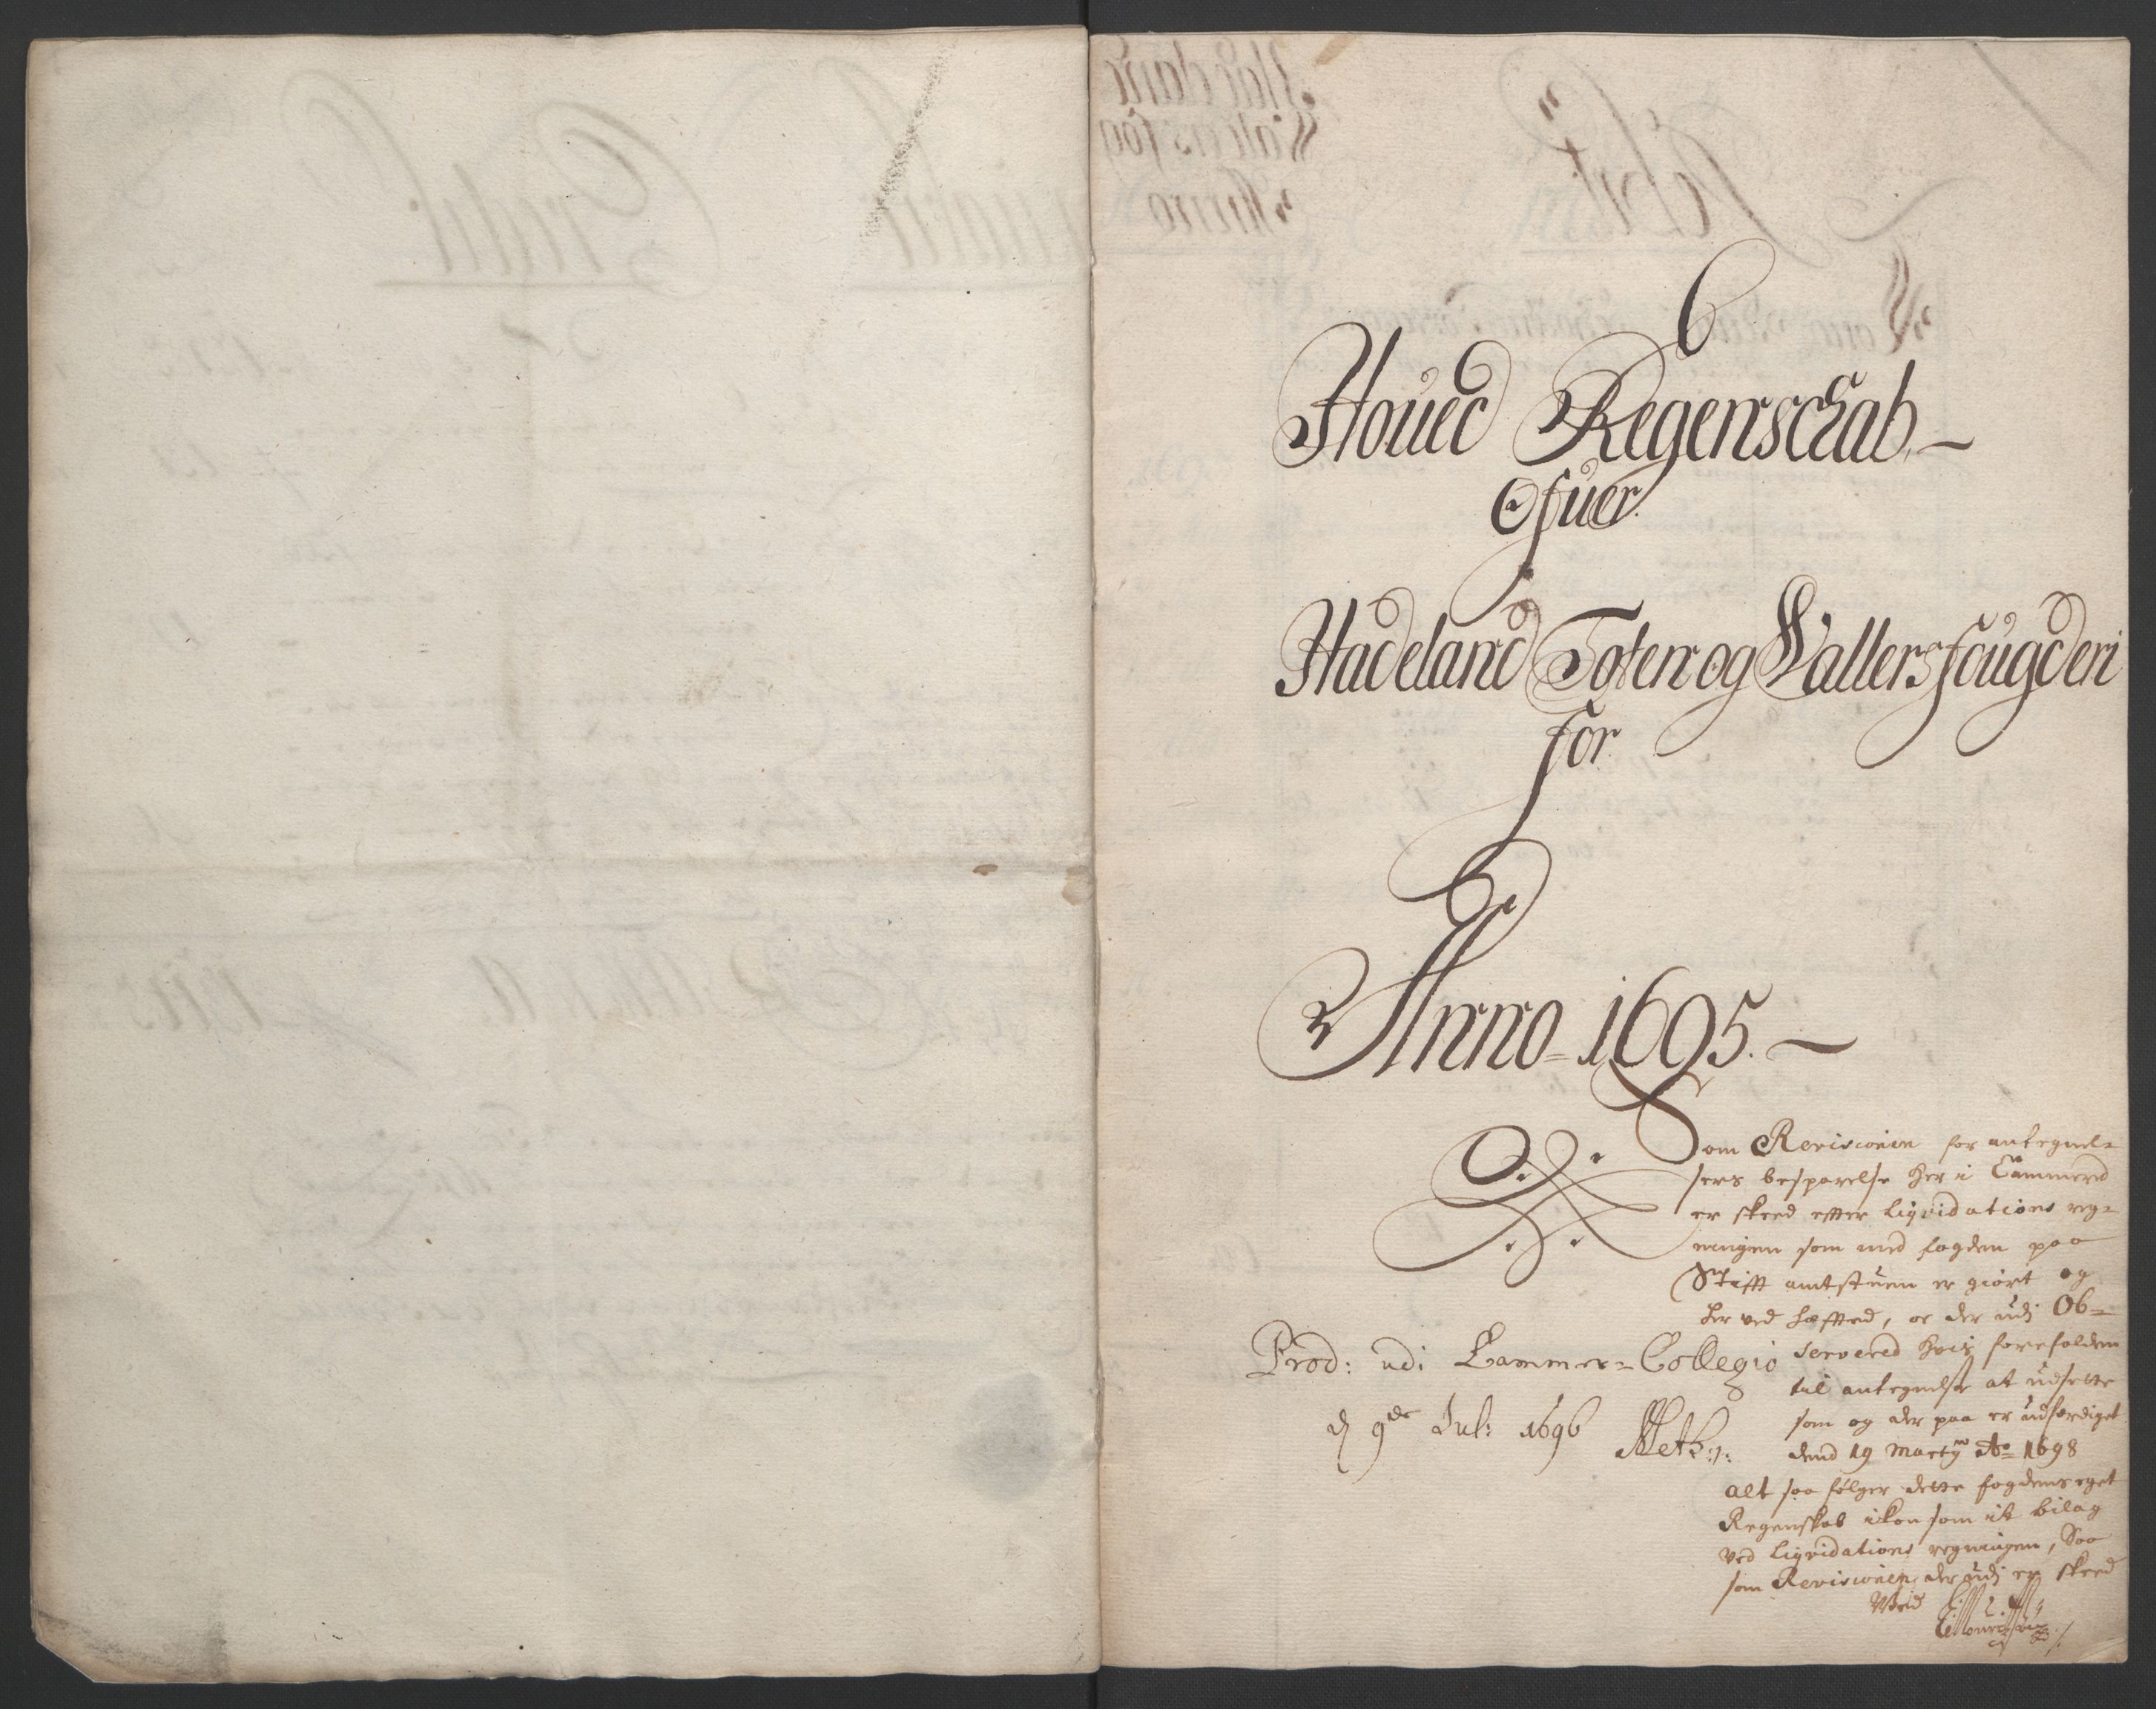 Houed Regenschab
Ofuer
Hadeland Toten og Vallers fougderi
for
Anno 1695.
Som Revisionen for antegnel=
sers besparelse her i Cammered
er skeed efter liqvidations reg=
ningen som med fogden paa
Stift amtstuen er giort og
her ved hæfted, er der udj Ob=
servered hvis forefalden
til antegnelse at udsette
som og der paa er udferdiget
dend 19 Martij Ao 1698
alt saa følger dette fogdens eget
Regenskab ickon som it bilag
ved liqvidations regningen, Saa
som Revisionen der udj er skeed
Prod: udi Cammer=Collegio
d 9de Jul: 1696